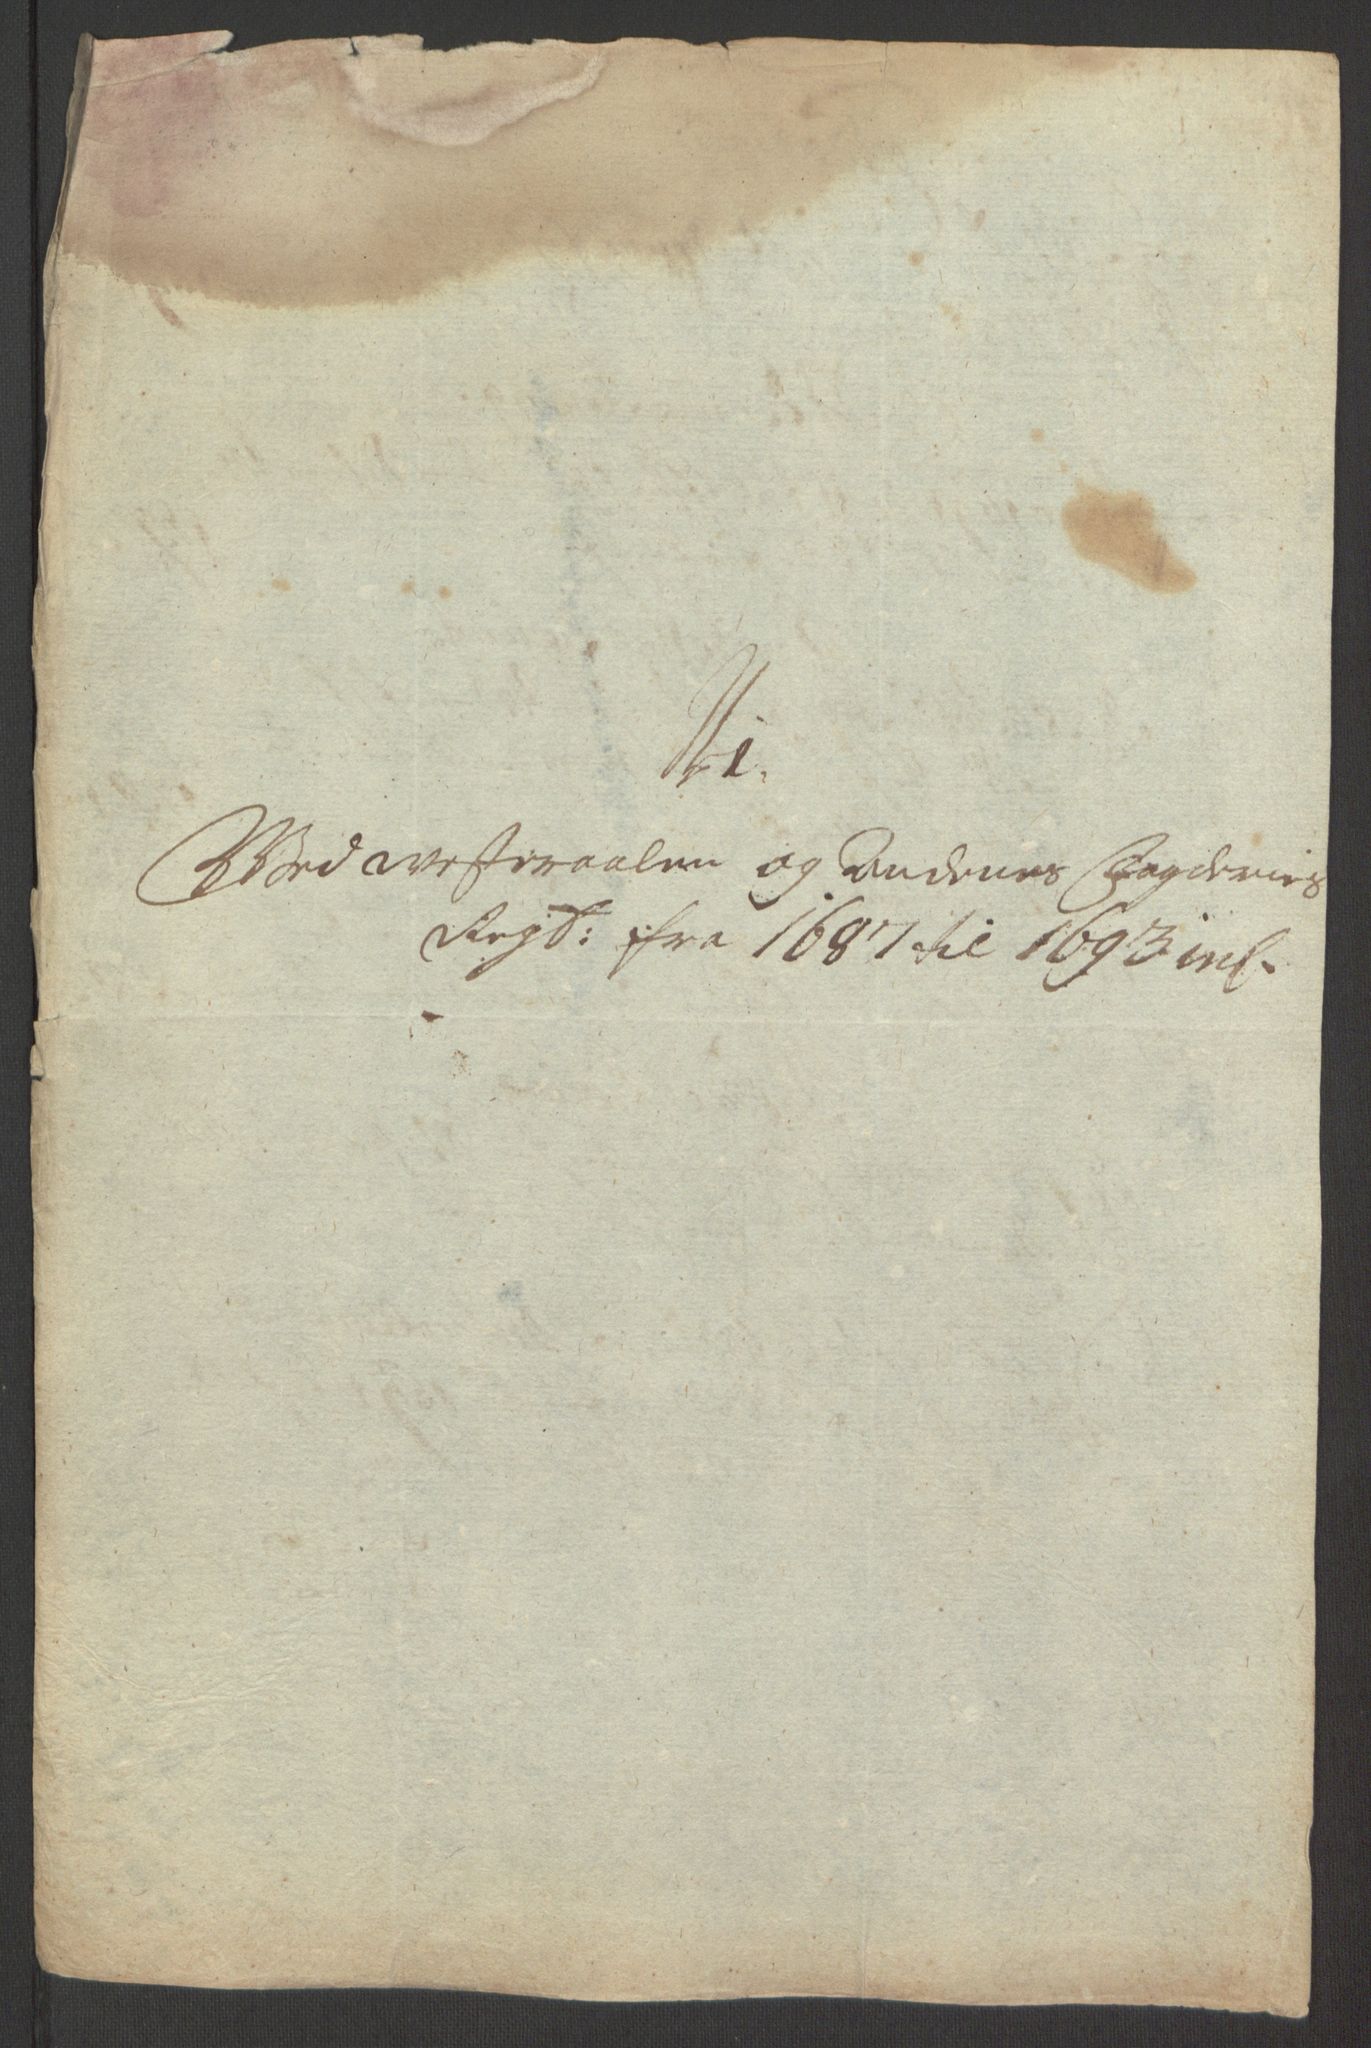 N 1.
Wed westeraalen og Andenes Fogderies
Regsb: fra 1687 til 1693 incl.